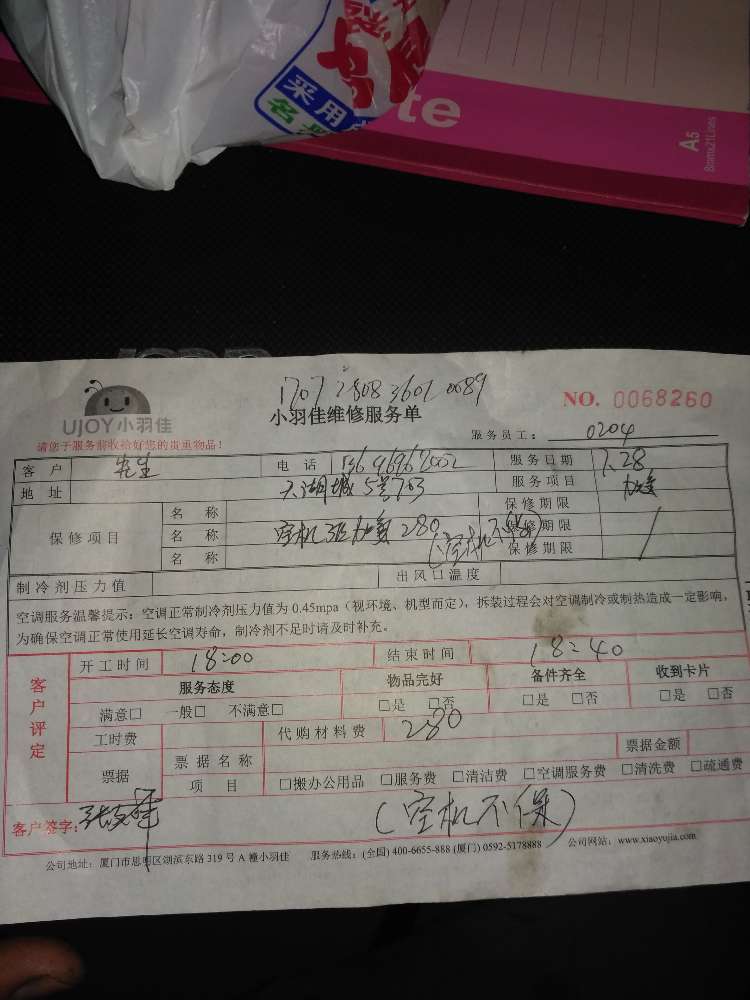 采用
te
A5
8mmx21Lines
1707 2808 3601 0089
UJOY小羽佳
小羽佳维修服务单
NO. 0068260
请您于服务前收拾好您的贵重物品！
服务员工： 0204
客户 先生 电话 服务日期 7.28
地址 天湖城5号703 服务项目 加氟
保修项目
名称 保修期限
名称 空机 加氟280 (空机不保) 保修期限
名称 保修期限
制冷剂压力值 出风口温度
空调服务温馨提示：空调正常制冷剂压力值为 0.45mpa（视环境、机型而定），拆装过程会对空调制冷或制热造成一定影响，
为确保空调正常使用延长空调寿命，制冷剂不足时请及时补充。
客户评定
开工时间 18:00 结束时间 18:40
服务态度 物品完好 备件齐全 收到卡片
满意□ 一般□ 不满意□ □是 □否 □是 □否 □是 □否
工时费 代购材料费 280
票据 票据名称 票据金额
项目 □搬办公用品 □服务费 □清洁费 □空调服务费 □清洗费 □疏通费
客户签字：
(空机不保)
公司地址：厦门市思明区湖滨东路 319 号 A 幢小羽佳 服务热线：(全国) 400-6655-888 (厦门) 0592-5178888 公司网站：www.xiaoyujia.com